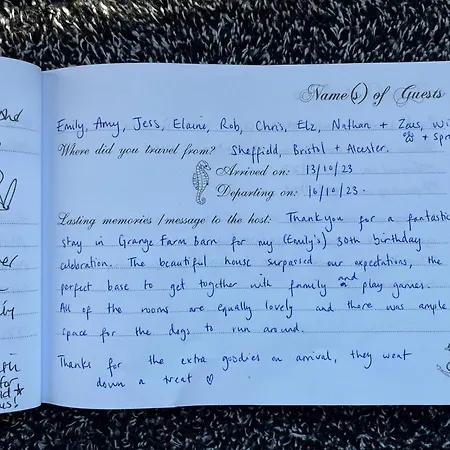 Name(s) of Guests
Emily, Amy, Jess, Elaine, Rob, Chris, Elz, Nathan + Zeus,
Where did you travel from? Sheffield, Bristol + Alcester.
Arrived on: 13/10/23
Departing on: 16/10/23.
Lasting memories / message to the host: Thankyou for a fantastic
stay in Grange Farm Barn for my (Emily's) 30th birthday
celebration. The beautiful house surpassed our expectations, the
perfect base to get together with family and play games.
All of the rooms are equally lovely and there was ample
space for the dogs to run around.
Thanks for the extra goodies on arrival, they went
down a treat ♡